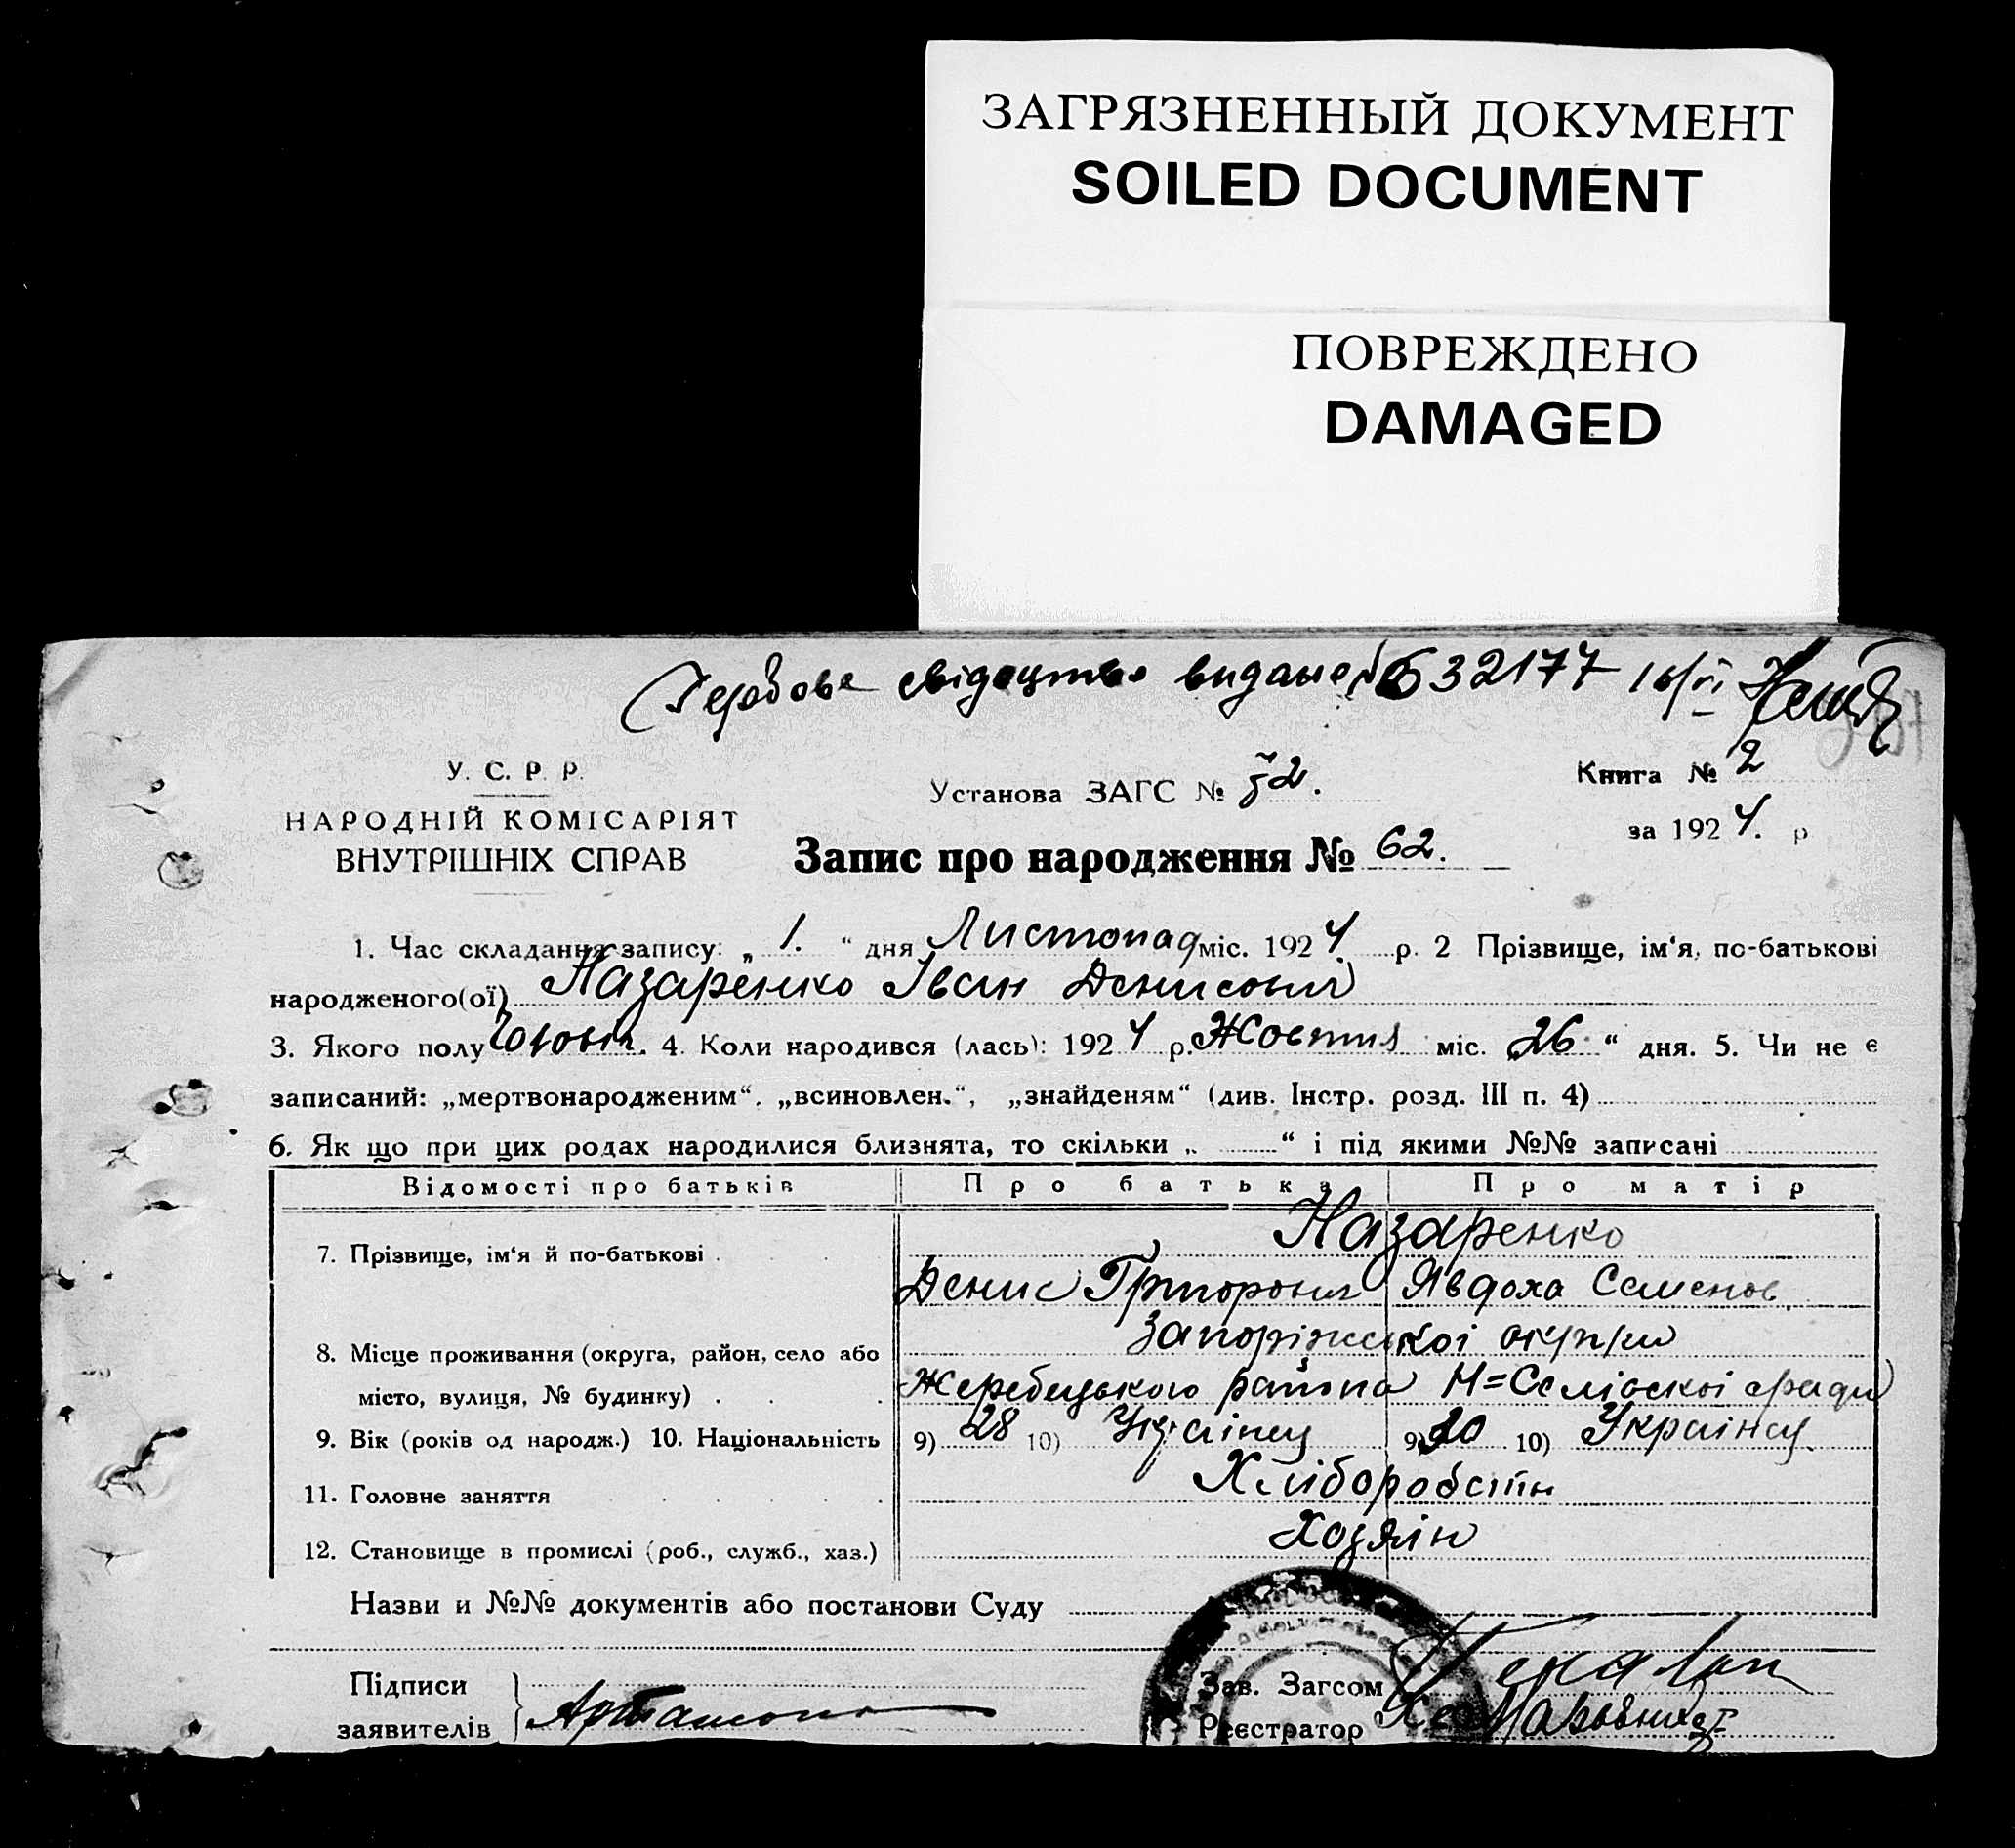 ЗАГРЯЗНЕННЫЙ ДОКУМЕНТ
SOILED DOCUMENT
ПОВРЕЖДЕНО
DAMAGED
Гербове свідоцтво видане № 632177 16/VI
У. С. Р. Р.
НАРОДНІЙ КОМІСАРІЯТ
ВНУТРІШНІХ СПРАВ
Установа ЗАГС №
Запис про народження № 62.
Книга № 2
за 1924. р
1. Час складання запису: „ 1. “ дня Листопад міс. 1924. р. 2 Прізвище, ім‘я, по-батькові
народженого(ої) Назаренко Іван Денисович
3. Якого полу Чоловіч. 4. Коли народився (лась): 1924 р. Жовтня міс. 26 “ дня. 5. Чи не є
записаний: „мертвонародженим“, „всиновлен.“, „знайденям“ (див. Інстр. розд. III п. 4)
6. Як що при цих родах народилися близнята, то скільки „ “ і під якими №№ записані
Відомості про батьків Про батька Про матір
7. Прізвище, ім‘я й по-батькові . Назаренко
Денис Григорович Явдоха Семенов.
8. Місце проживання (округа, район, село або Запоріжської округи
місто, вулиця, № будинку) . Жеребецького района Н=Селівскої
9. Вік (років од народж.) 10. Національність 9) 28 10) Українец 9) 20 10) Українец
11. Головне заняття Хліборобств
12. Становище в промислі (роб., служб., хаз.) Хозяін
Назви и №№ документів або постанови Суду
Підписи
заявителів
Зав. Загсом
Реєстратор